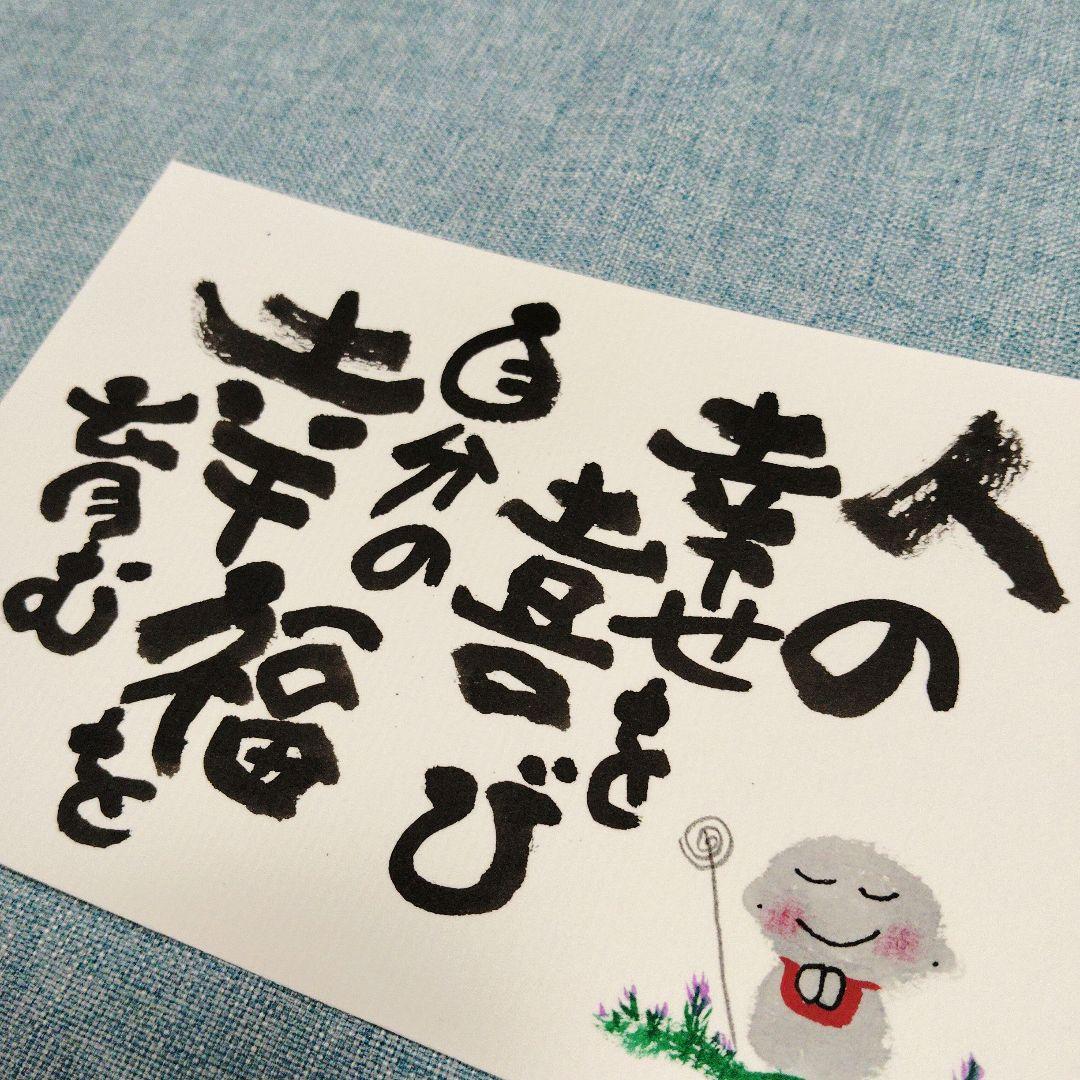 人の
幸せを
喜び
自分の
幸福を
育む